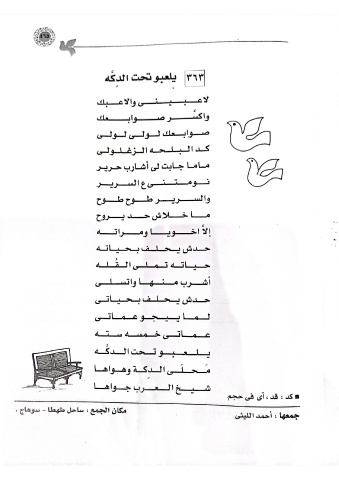 ٣٦٣ يلعبو تحت الدكَّه
لاعبينى والاعبك
واكسَّر صوابعك
صوابعك لولى لولى
كد البلحه الزغلولى
ماما جابت لى أشارب حرير
نومتنى ع السرير
والسرير طوح طوح
ما خلاش حد يروح
إلا اخويا ومراته
حدش يحلف بحياته
حياته تملى القُله
أشرب منها واتسلى
حدش يحلف بحياتى
لما ييجو عماتى
عماتى خمسه سته
يلعبو تحت الدكَّه
مَحلَى الدِكة وهواها
شيخ العرب جواها
■ كد : قد ، أى فى حجم
جمعها : أحمد الليثى
مكان الجمع : ساحل طهطا - سوهاج .